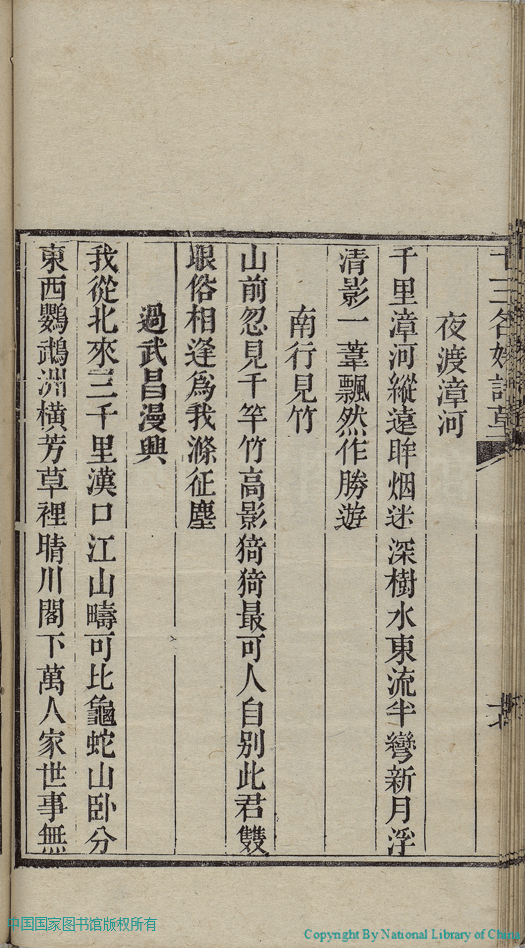 夜渡漳河
千里漳河縱遠眸烟迷深樹水東流半彎新月浮
清影一葦飄然作勝遊
南行見竹
山前忽見千竿竹高影猗猗最可人自別此君雙
眼俗相逢為我滌征塵
過武昌漫興
我從北來三千里漢口江山疇可比龜蛇山臥分
東西鸚鵡洲橫芳草裡晴川閣下萬人家世事無
中国国家图书馆版权所有
Copyright By National Library of China